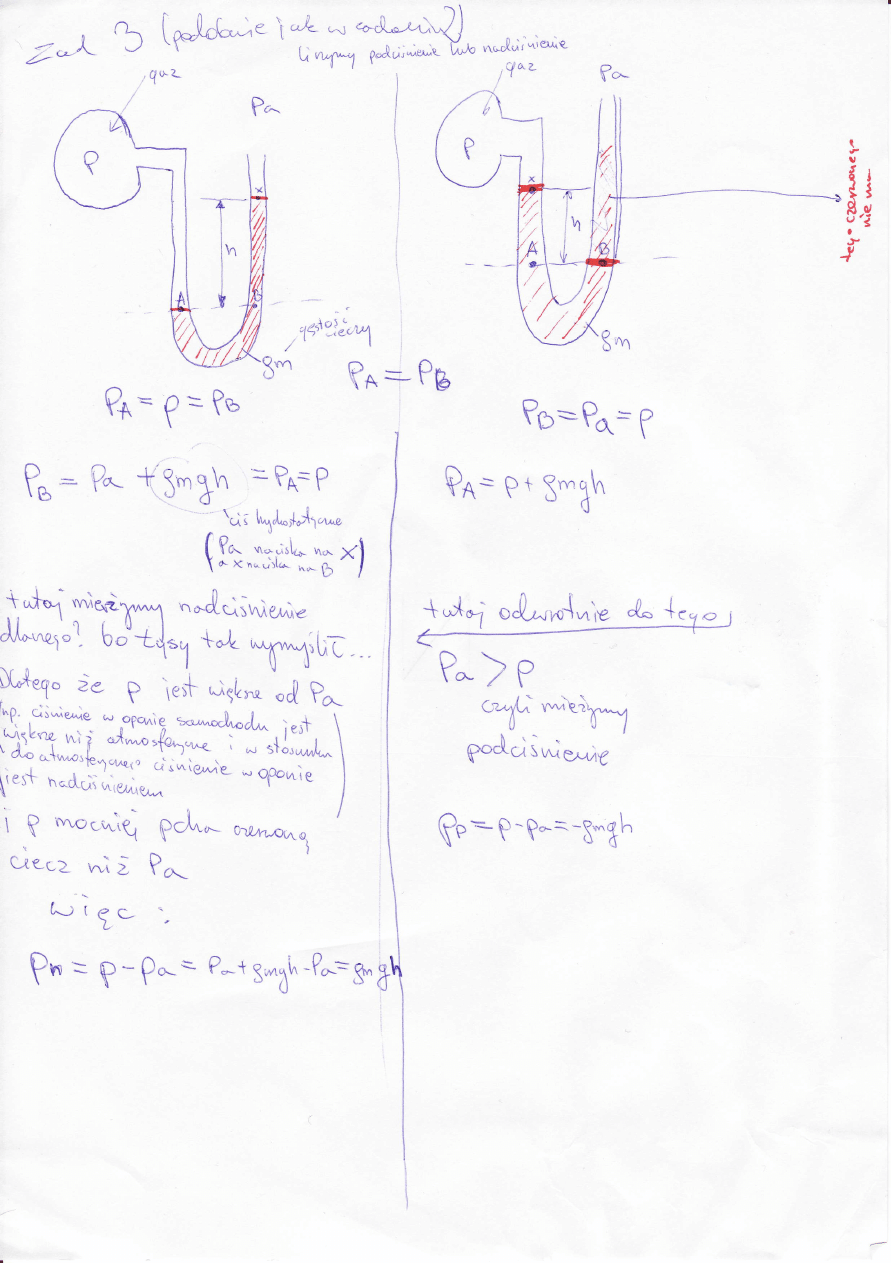 Zad 3 (podobnie jak w zadaniu 2)
liczymy podciśnienie lub nadciśnienie
gaz
Pa
P
x
h
A
B
gęstość cieczy
ρm
gaz
Pa
P
x
h
A
B
ρm
tego czerwonego
nie ma
PA = PB
PA = p = PB
PB = Pa + ρmgh = PA = P
ciś hydrostatyczne
(Pa naciska na X)
a x naciska na B
tutaj mierzymy nadciśnienie
dlaczego? bo łysy tak wymyślił...
Dlatego że p jest większe od Pa
np. ciśnienie w oponie samochodu jest
większe niż atmosferyczne i w stosunku
do atmosferycznego ciśnienie w oponie
jest nadciśnieniem
i p mocniej pcha czerwoną
ciecz niż Pa
więc :
pn = p - pa = Pa + ρmgh - Pa = ρmgh
PB = Pa = p
PA = p + ρmgh
tutaj odwrotnie do tego
Pa > p
czyli mierzymy
podciśnienie
pp = p - pa = -ρmgh